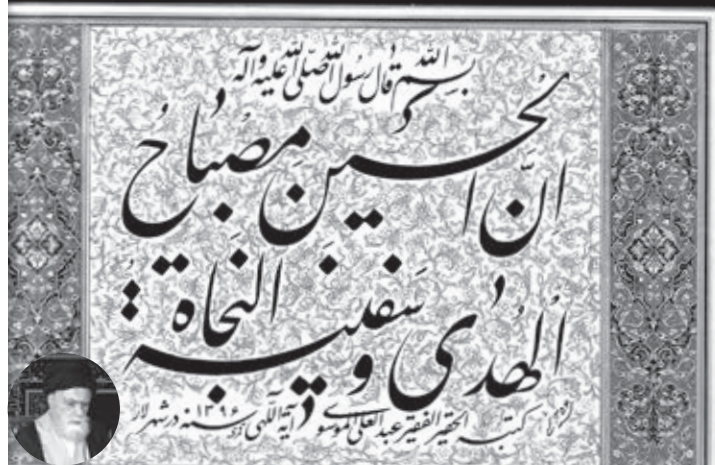 بسم الله قال رسول الله صلّی الله علیه وآله
انّ الحسین مصباح
الهُدی و سفینة النجاة
کتبه الحقیر الفقیر عبدالعلی الموسوی آیة اللهی سنه ۱۳۹۶ در شهر لار